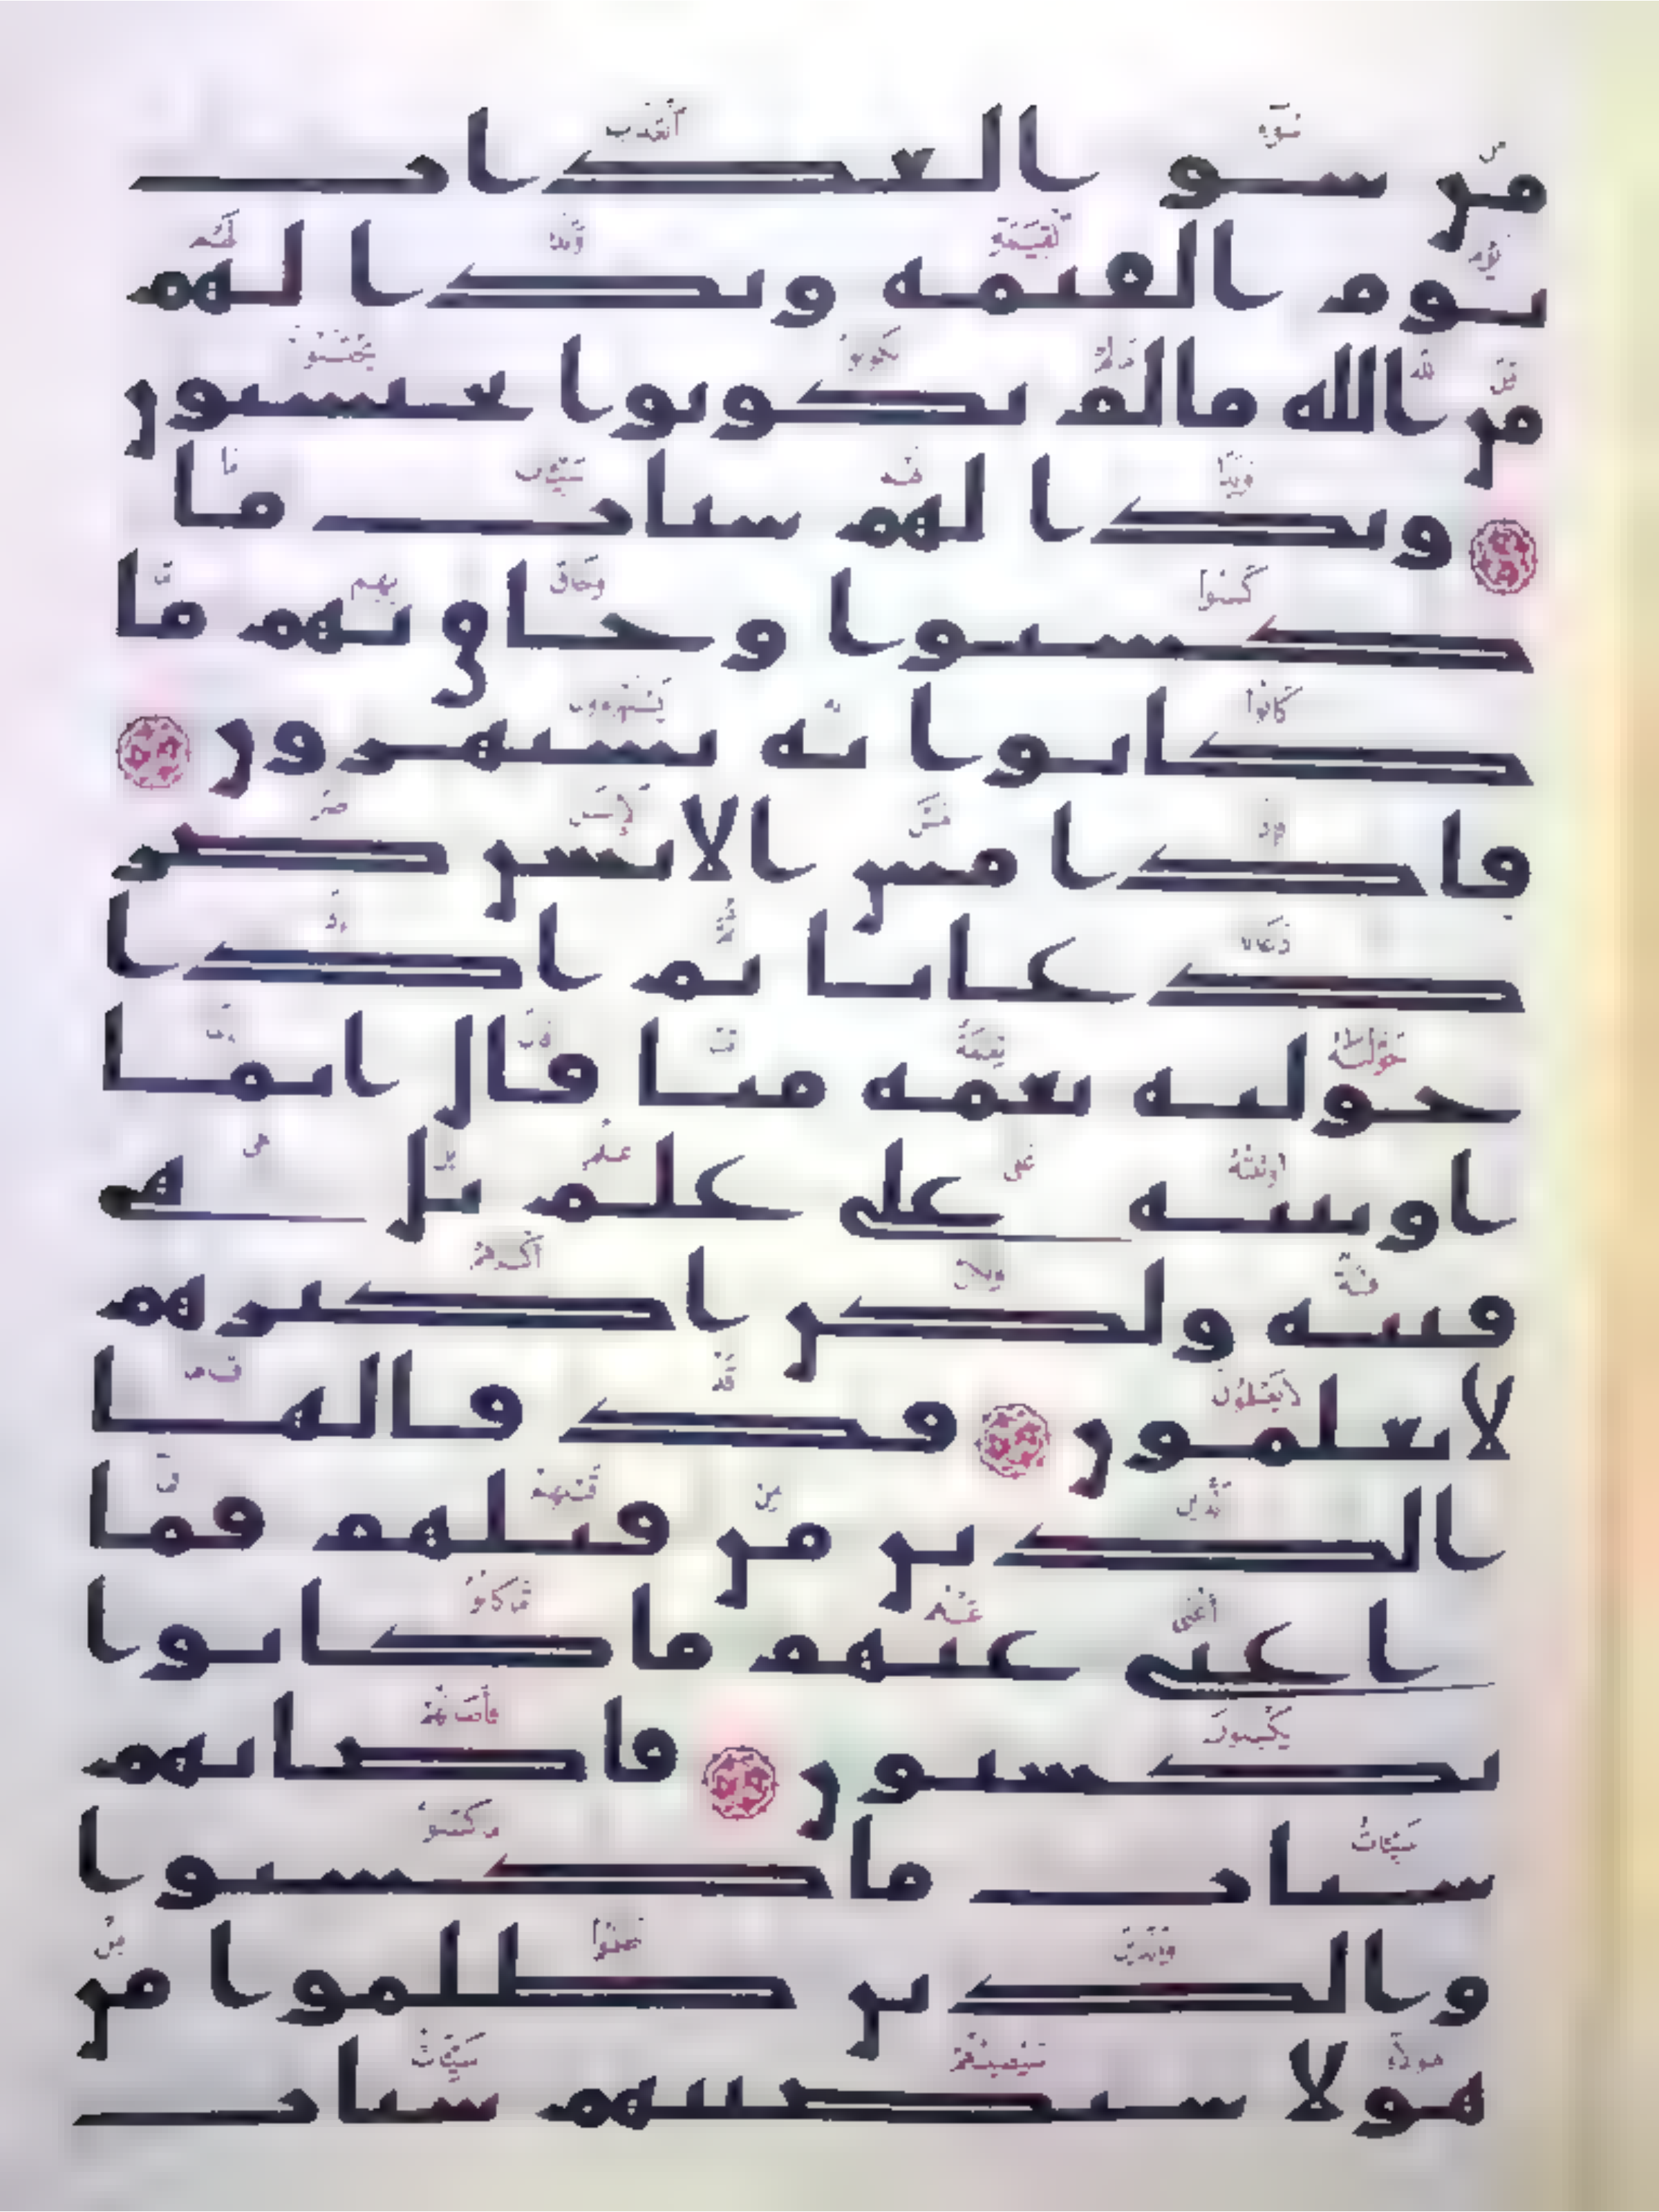 من سو العذاب
يوم القيمة وبدا لهم
من الله ما لم يكونوا يحتسبون
وبدا لهم سيات ما
كسبوا وحاق بهم ما
كانوا به يستهزون
فاذا مس الانسن ضر
دعانا ثم اذا
خولنه نعمة منا قال انما
اوتيته على علم بل هي
فتنة ولكن اكثرهم
لا يعلمون قد قالها
الذين من قبلهم فما
اغنى عنهم ما كانوا
يكسبون فاصابهم
سيات ما كسبوا
والذين ظلموا من
هولا سيصيبهم سيات